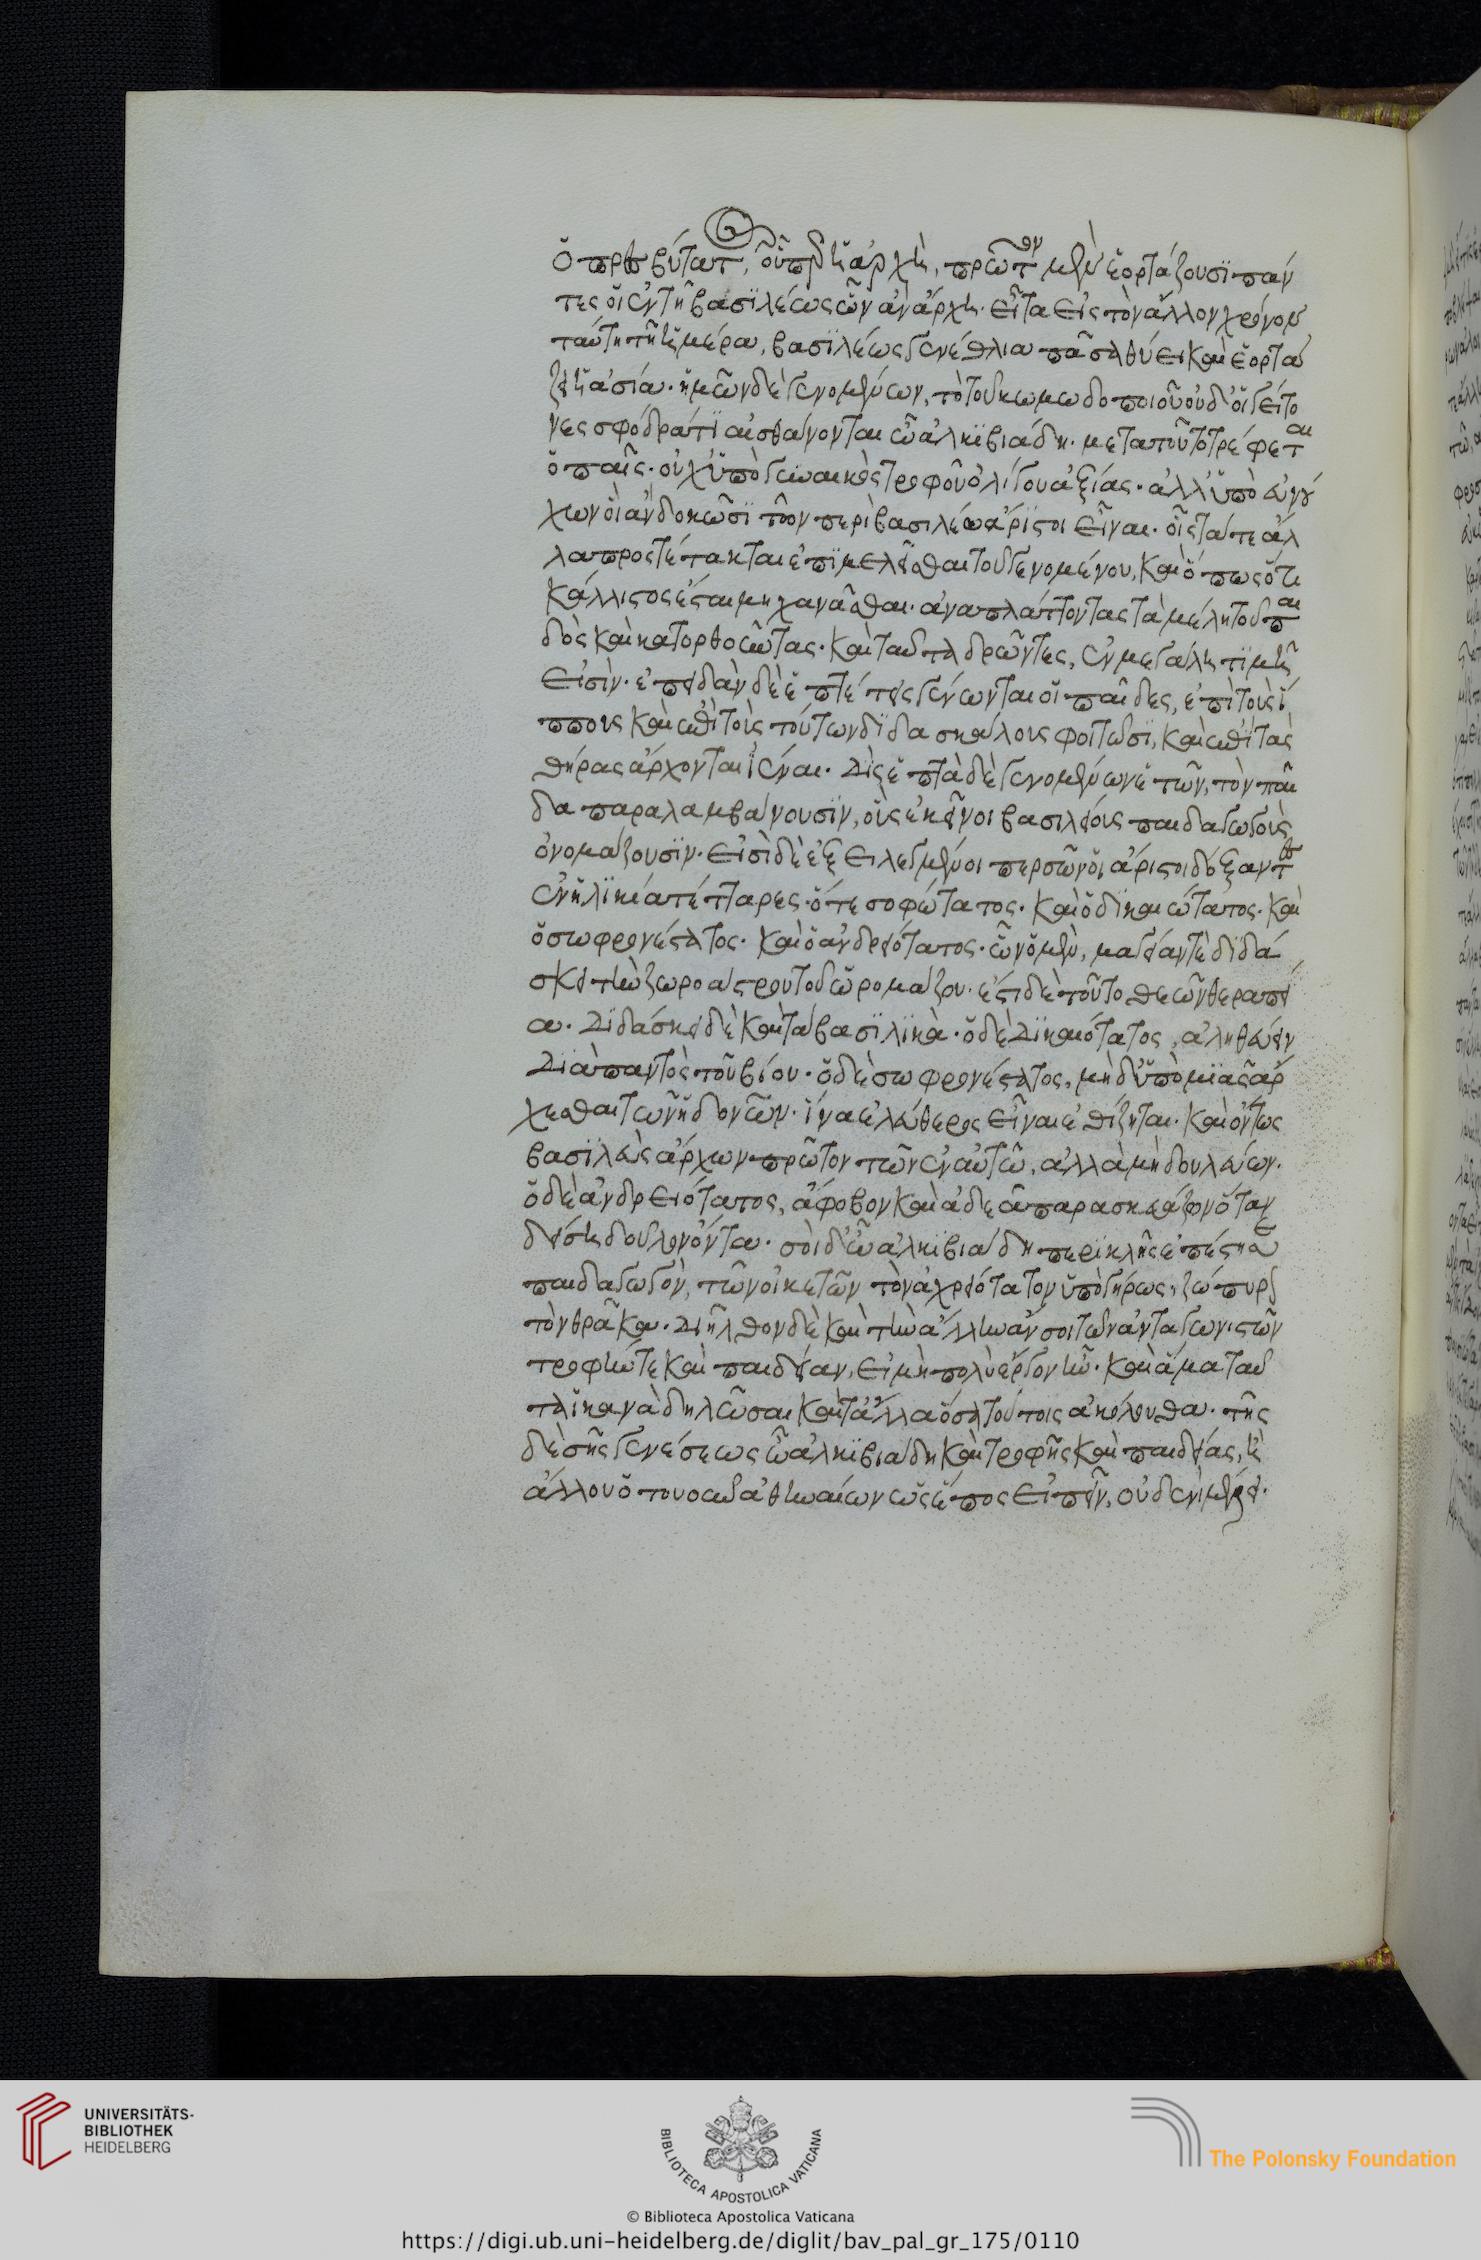 ὁ πρεσβύτατος, οὗπερ ἡ ἀρχὴ, πρῶτον μὲν ἑορτάζουσι πάν
τες οἱ ἐν τῆ βασιλέως ὧν ἂν ἄρχη. εἶτα εἰς τὸν ἄλλον χρόνον
ταύτη τῆ ἡμέρα, βασιλέως γενέθλια πᾶσα θύει καὶ ἑορτά
ζει ἡ ἀσία. ἡμῶν δὲ γενομένων, τὸ τοῦ κωμωδοποιοῦ οὐδ' οἱ γείτο
νες σφόδρά τι αἰσθάνονται ὦ ἀλκιβιάδη. μετὰ τοῦτο τρέφεται
ὁ παῖς. οὐχ ὑπὸ γυναικὸς τροφοῦ ὀλίγου ἀξίας. ἀλλ' ὑπὸ εὐνού
χων οἳ ἂν δοκῶσι τῶν περὶ βασιλέα ἄριστοι εἶναι. οἷς τά τε ἄλ
λα προστέτακται ἐπιμελεῖσθαι τοῦ γενομένου, καὶ ὅπως ὅτι
κάλλιστος ἔσται μηχανᾶσθαι. ἀναπλάττοντας τὰ μέλη τοῦ παι
δὸς καὶ κατορθοῦντας. καὶ ταῦτα δρῶντες, ἐν μεγάλη τιμῆ
εἰσίν. ἐπειδὰν δὲ ἑπτέτεις γένωνται οἱ παῖδες, ἐπὶ τοὺς ἵ
ππους καὶ ἐπὶ τοὺς τούτων διδασκάλους φοιτῶσι, καὶ ἐπὶ τὰς
θήρας ἄρχονται ἰέναι. δὶς ἑπτὰ δὲ γενομένων ἐτῶν, τὸν παῖ
δα παραλαμβάνουσιν, οὓς ἐκεῖνοι βασιλείους παιδαγωγοὺς
ὀνομάζουσιν. εἰσὶ δὲ ἐξειλεγμένοι περσῶν οἱ ἄριστοι δόξαντες
ἐν ἡλικία τέτταρες. ὅ τε σοφώτατος. καὶ ὁ δικαιώτατος. καὶ
ὁ σωφρονέστατος. καὶ ὁ ἀνδρειότατος. ὧν ὁ μὲν, μαγείαν τὲ διδά
σκει τὴν ζωροάστρου τοῦ ὡρομάζου. ἔστι δὲ τοῦτο θεῶν θεραπεί
α. διδάσκει δὲ καὶ τὰ βασιλικὰ. ὁ δὲ δικαιότατος, ἀληθεύειν
διὰ παντὸς τοῦ βίου. ὁ δὲ σωφρονέστατος, μὴ δ' ὑπὸ μιᾶς ἄρ
χεσθαι τῶν ἡδονῶν. ἵνα ἐλεύθερος εἶναι ἐθίζηται. καὶ ὄντως
βασιλεὺς ἄρχων πρῶτον τῶν ἐν αὑτῶ, ἀλλὰ μὴ δουλεύων.
ὁ δὲ ἀνδρειότατος, ἄφοβον καὶ ἀδεᾶ παρασκευάζων ὅταν
δείση δοῦλον ὄντα. σοὶ δ' ὦ ἀλκιβιάδη περικλῆς ἐπέστησε
παιδαγωγὸν, τῶν οἰκετῶν τὸν ἀχρειότατον ὑπὸ γήρως, ζώπυρον
τὸν θρᾶκα. διῆλθον δὲ καὶ τὴν ἄλλην ἄν σοι τῶν ἀνταγωνιστῶν
τροφήν τε καὶ παιδείαν, εἰ μὴ πολὺ ἔργον ἦν. καὶ ἅμα ταῦ
τα ἱκανὰ δηλῶσαι καὶ τἄλλα ὅσα τούτοις ἀκόλουθα. τῆς
δὲ σῆς γενέσεως ὦ ἀλκιβιάδη καὶ τροφῆς καὶ παιδείας, ἢ
ἄλλου ὁτουοῦν ἀθηναίων ὡς ἔπος εἰπεῖν, οὐδενὶ μέλει.
UNIVERSITÄTS-
BIBLIOTHEK
HEIDELBERG
BIBLIOTECA APOSTOLICA VATICANA
The Polonsky Foundation
© Biblioteca Apostolica Vaticana
https://digi.ub.uni-heidelberg.de/diglit/bav_pal_gr_175/0110